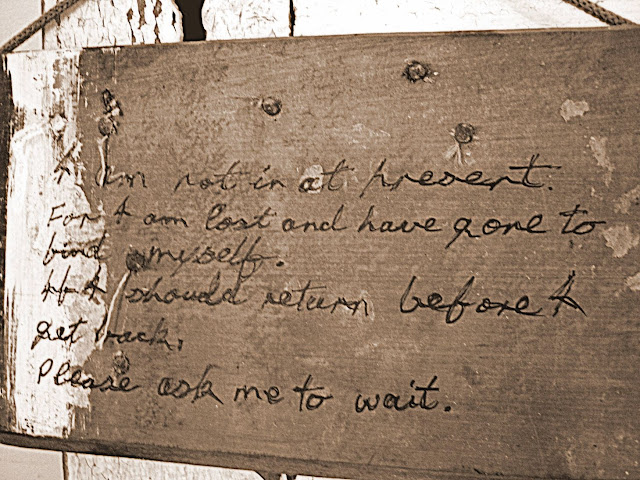 I am not in at present.
For I am lost and have gone to
find myself.
If I should return before I
get back,
Please ask me to wait.